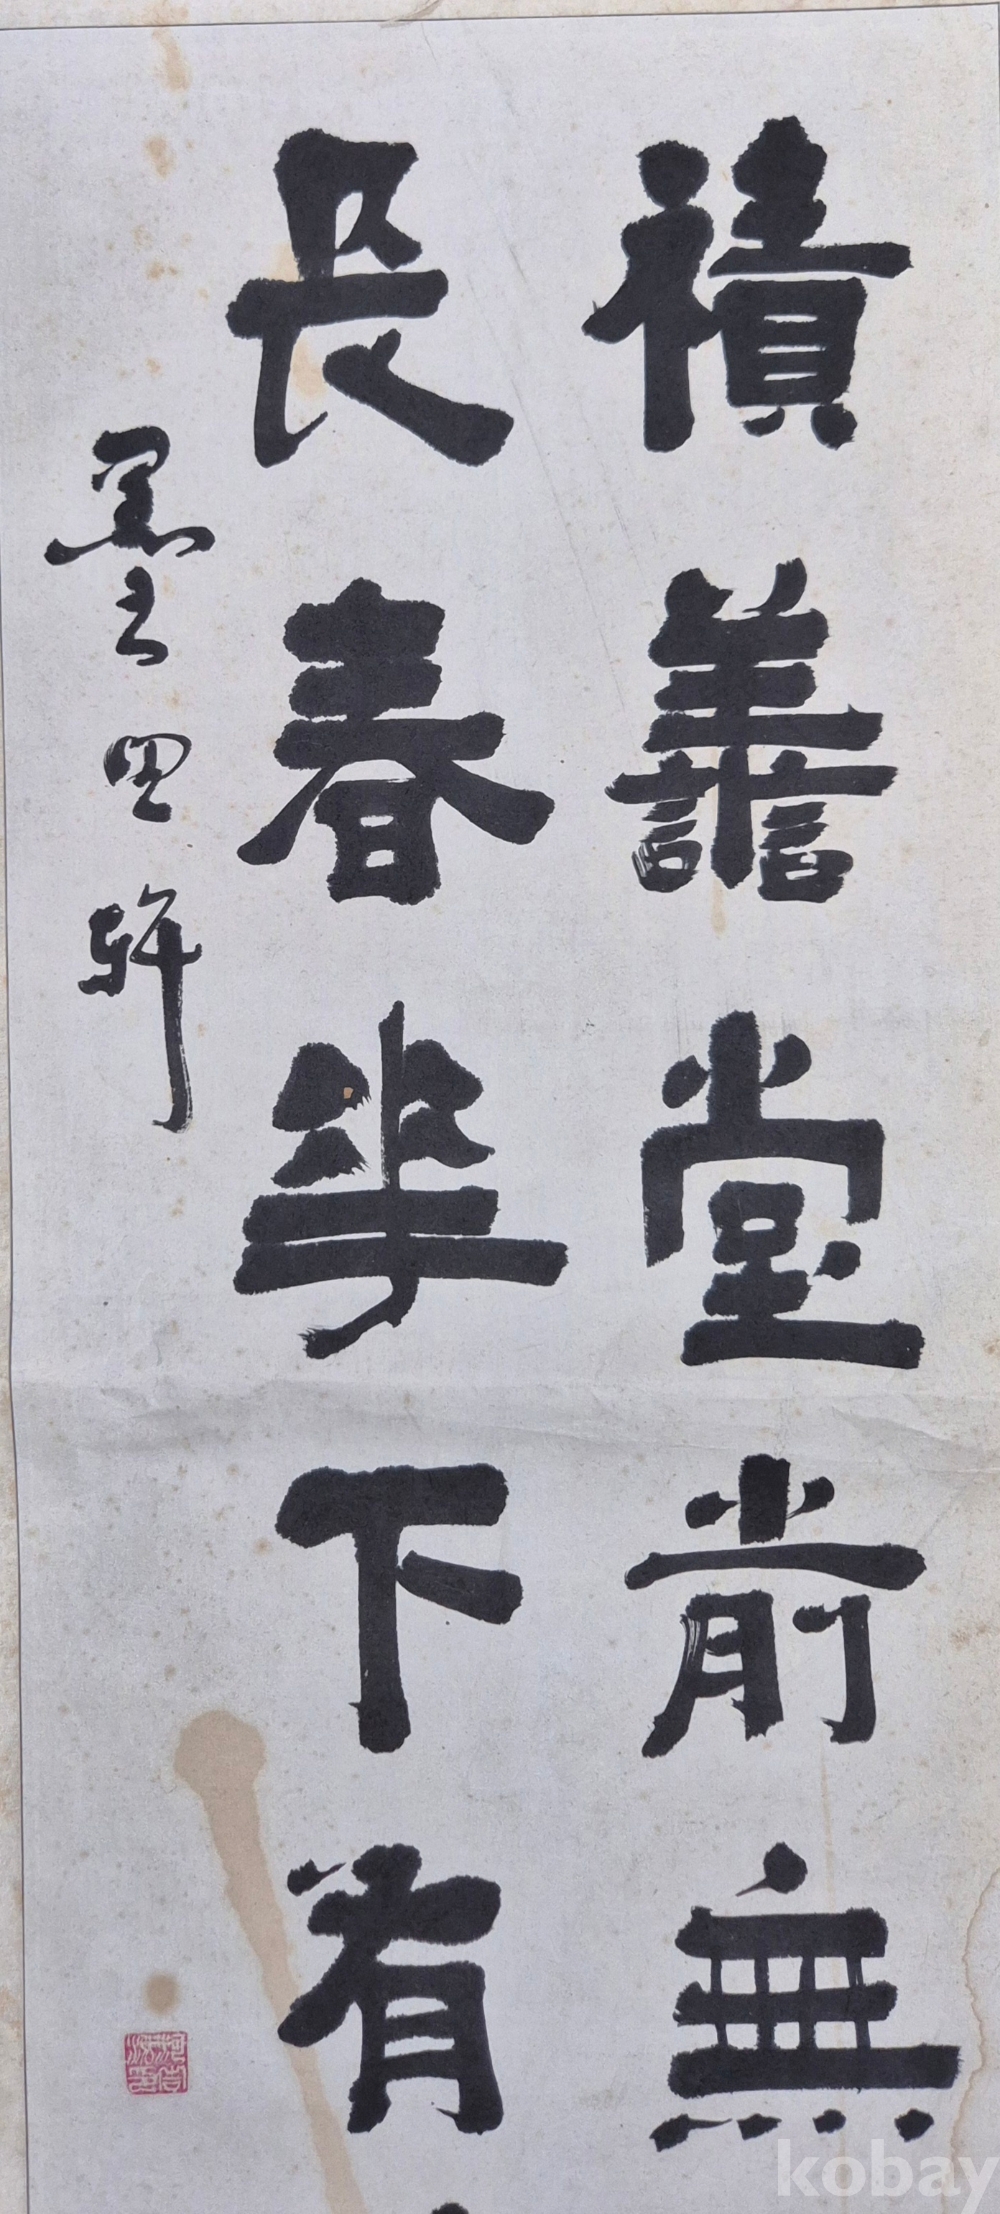 積善堂前無
長春花下有
墨士里軒
kobay